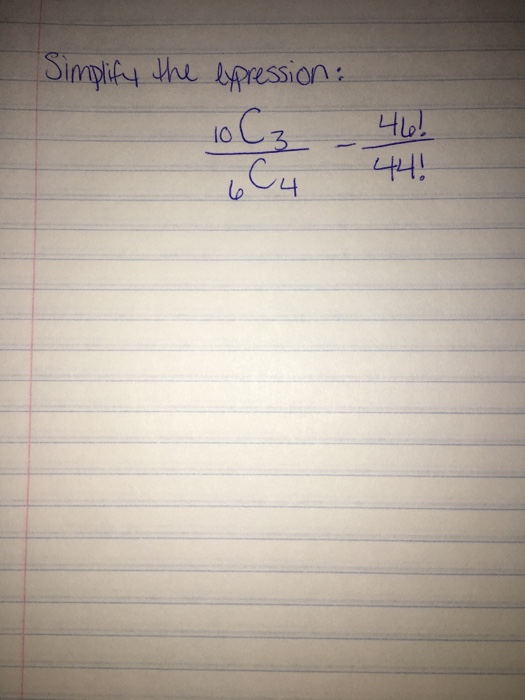 Simplify the expression:
10C3 / 6C4 - 46! / 44!